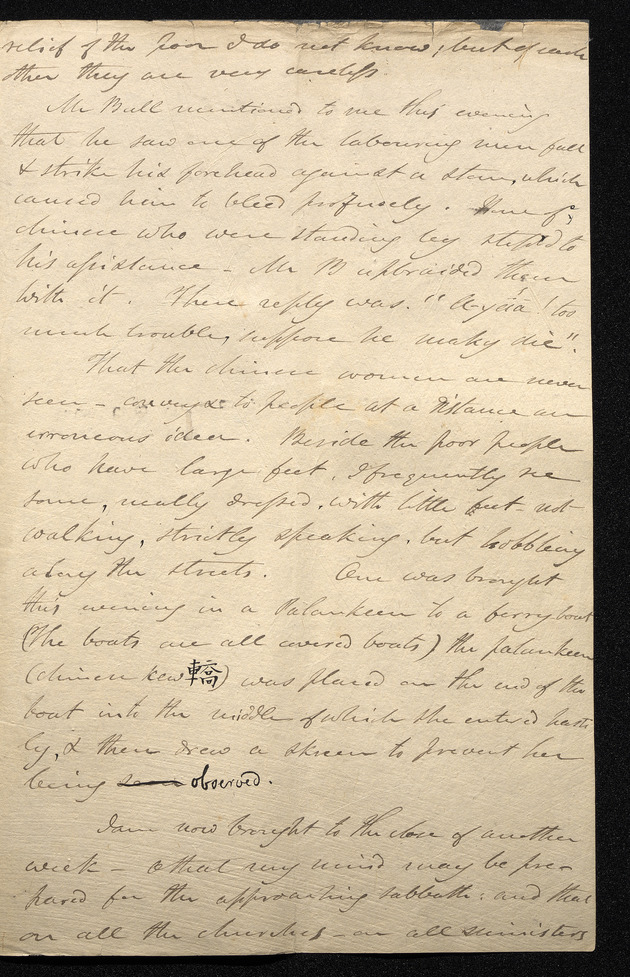 relief of the poor I do not know; but of each
other they are very careless.
Mr Ball mentioned to me this evening
that he saw one of the labouring men fall
& strike his forehead against a stone, which
caused him to bleed profusely. None of
chinese who were standing by stepp'd to
his assistance - Mr B upbraided them
with it. There reply was. "Ayáa! too
much trouble, suppose he maky die".
That the chinese women are never
seen - conveys to people at a distance an
erroneous idea. Beside the poor people
who have large feet, I frequently see
some, neatly dressed, with little feet - not
walking, strictly speaking, but hobbling
along the streets. One was brought
this evening in a Palankeen to a ferry boat
(The boats are all covered boats) the palankeen
(chinese kew 轎) was placed on the end of the
boat into the middle of which she entered hasti
ly, & then drew a skreen to prevent her
being seen observed.
I am now brought to the close of another
week - O that my mind may be pre-
pared for the approaching sabbath: and that
on all the churches - on all ministers